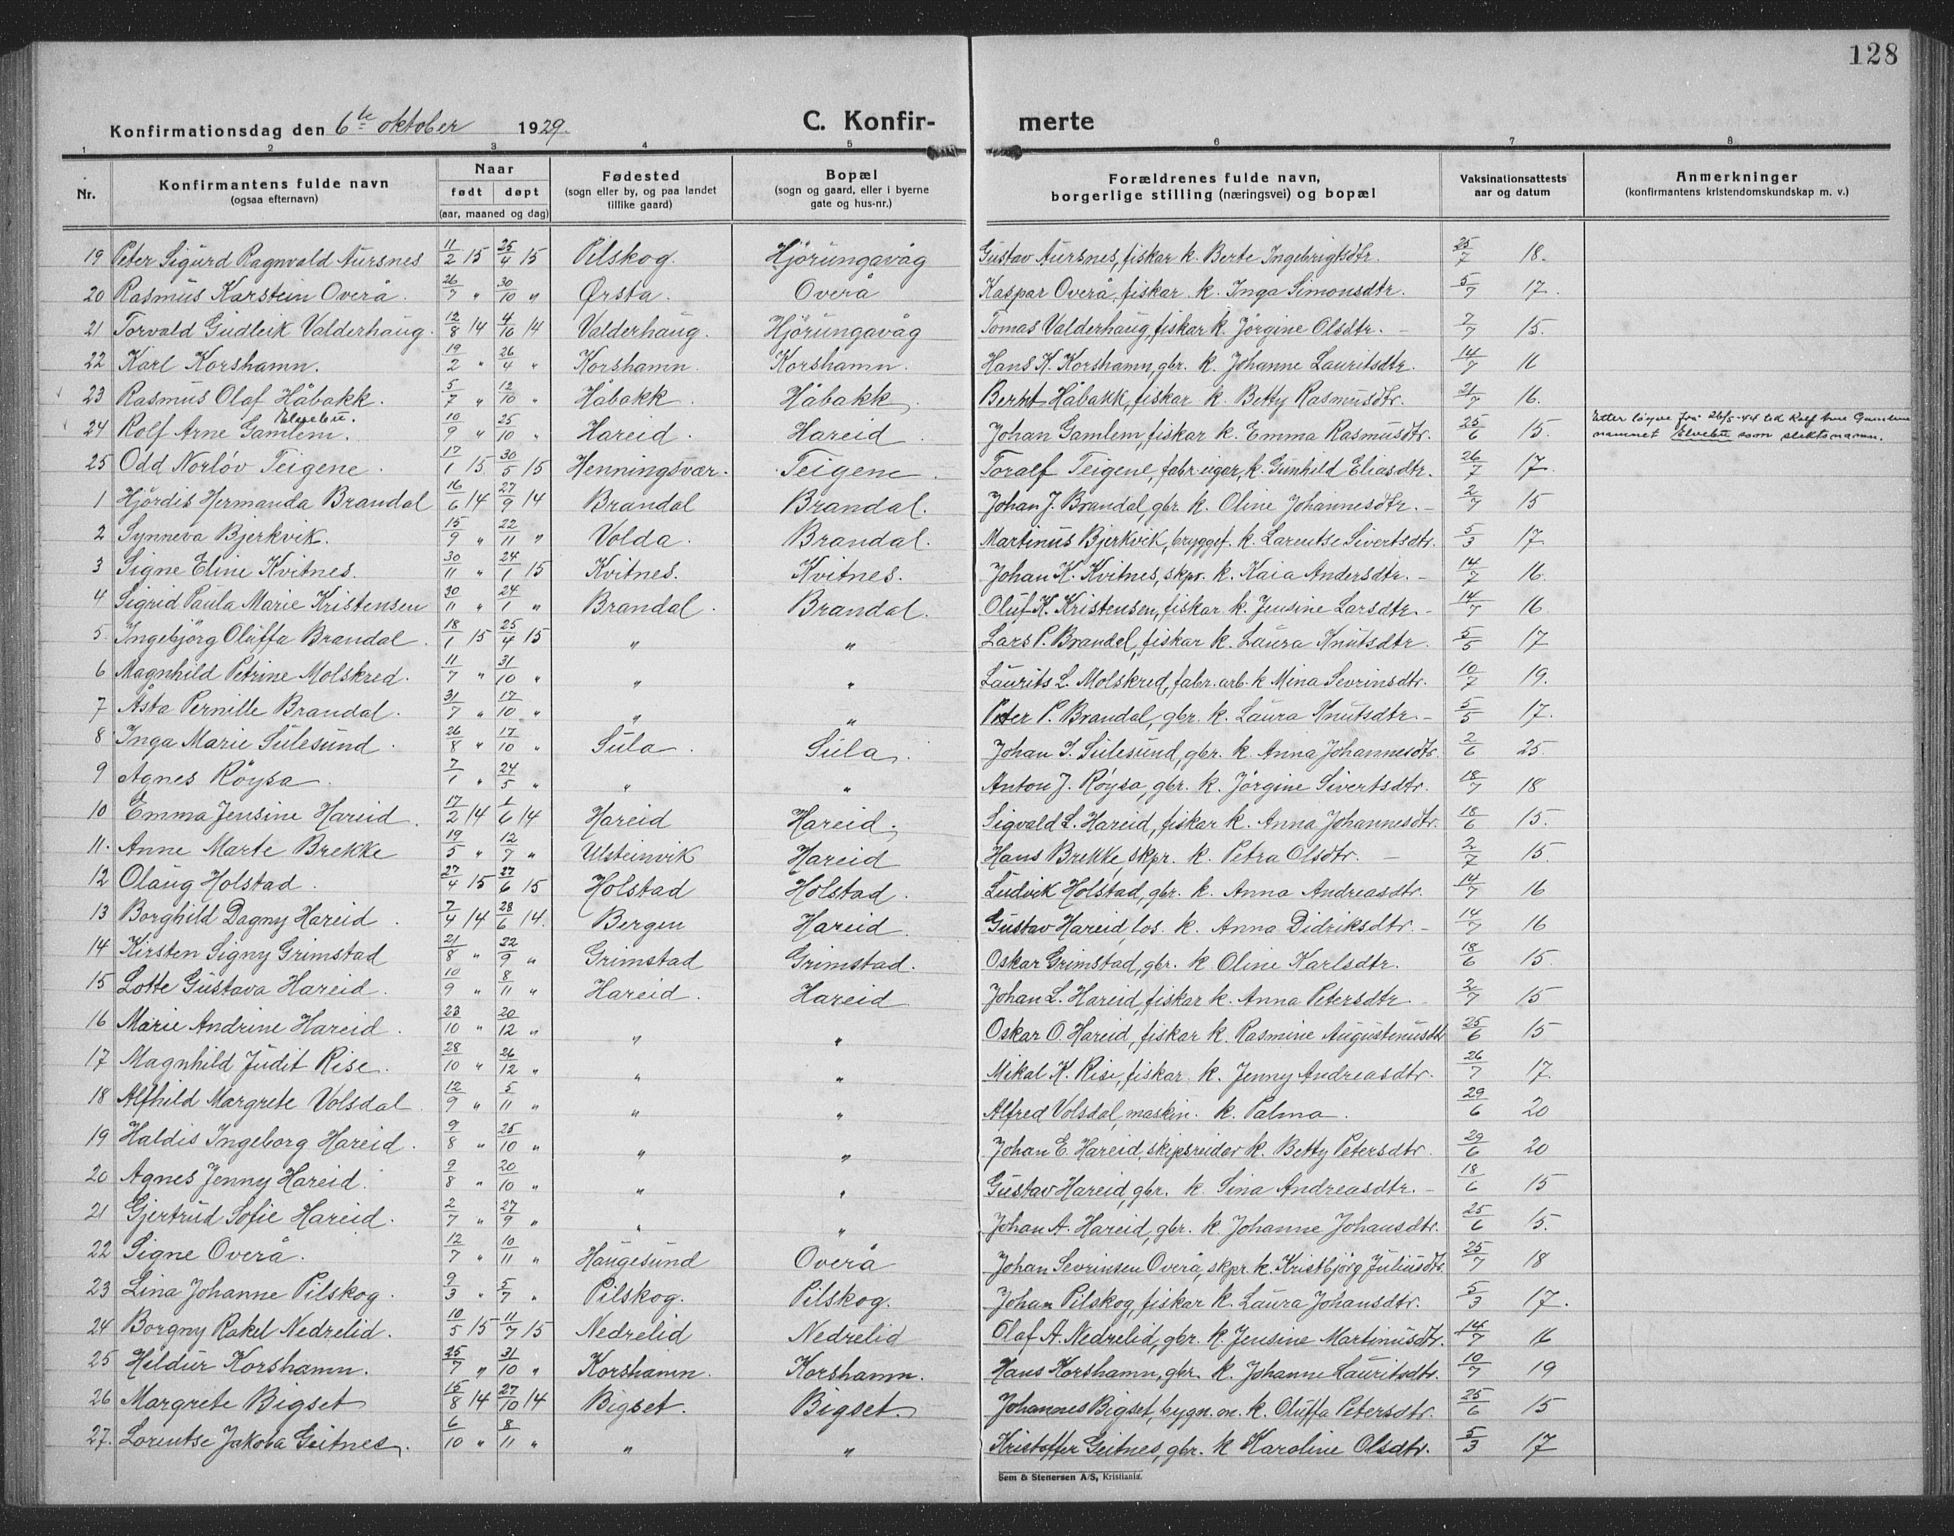 128
Konfirmationsdag den 6te oktober 1929. C. Konfir- merte
1 2 3 4 5 6 7 8
Nr. Konfirmantens fulde navn (ogsaa efternavn) Naar født døpt (aar, maaned og dag) Fødested (sogn eller by, og paa landet tillike gaard) Bopæl (sogn og gaard, eller i byerne gate og hus-nr.) Forældrenes fulde navn, borgerlige stilling (næringsvei) og bopæl Vaksinationsattests aar og datum Anmerkninger (konfirmantens kristendomskundskap m. v.)
19 Peter Sigurd Ragnvald Aursnes 11/2 15 25/4 15 Pilskog. Hjörungavåg Gustav Aursnes, fiskar k. Berte Ingebrigtsdtr. 25/7 18.
20 Rasmus Karstein Overå. 26/7 " 30/10 " Ørsta. Overå Kaspar Overå, fiskar k. Inga Simonsdtr. 5/7 17.
21 Torvald Gudleik Valderhaug. 12/8 14 4/10 14 Valderhaug. Hjörungavåg Tomas Valderhaug, fiskar k. Jörgine Olsdtr. - 2/7 15.
22 Karl Korshamn. 19/2 " 26/4 " Korshamn. Korshamn. Hans K. Korshamn, gbr. k. Johanne Lauritsdtr. 14/7 16
23 Rasmus Olaf Håbakk. 5/7 " 12/10 " Håbakk. Håbakk. Bernt Håbakk, fiskar k. Betty Rasmusdtr. 21/7 16.
24 Rolf Arne Gamlem. Elvebu. 10/9 " 25/10 " Hareid. Hareid. Johan Gamlem, fiskar k. Emma Rasmusdtr. 25/6 15. Etter löyve frå 26/5-44 tok Rolf Arne Gamlem namnet Elvebu som slektsnavn.
25 Odd Norlöv Teigene. 17/1 15. 30/5 15 Henningsvær. Teigene. Toralf Teigene, fabr.eigar, k. Gunhild Eliasdtr. 26/7 17.
1 Hjördis Hermanda Brandal 16/6 14 27/9 14 Brandal Brandal. Johan J. Brandal, gbr. k. Oline Johannesdtr. - 2/7 15
2 Synneva Bjerkvik. 15/9 " 22/11 " Volda. Brandal. Martinus Bjerkvik, bryggef. k. Larentse Sivertsdtr. 5/3 17.
3 Signe Eline Kvitnes. 30/11 " 24/1 15 Kvitnes. Kvitnes. Johan K. Kvitnes, skpr. k. Kaia Andersdtr. - 14/7 16.
4 Sigrid Paula Marie Kristensen 30/11 " 24/1 " Brandal. Brandal. Oluf K. Kristensen, fiskar k. Jensine Larsdtr. - 14/7 16
5. Ingebjörg Oluffa Brandal. 18/1 15 25/4 15 " " Lars P. Brandal, fiskar k. Laura Knutsdtr. 5/5 17
6 Magnhild Petrine Molskred. 11/7 " 31/10 " " " Laurits L. Molskred, fabr.arb. k Mina Sevrinsdtr. 10/7 19.
7 Åsta Pernille Brandal. 31/7 " 17/10 " " " Peter P. Brandal, gbr. k. Laura Knutsdtr. - 5/5 17.
8 Inga Marie Sulesund. 26/8 " 17/10 " Sula. Sula. Johan S. Sulesund, gbr. k. Anna Johannesdtr. 2/6 25.
9 Agnes Röysa. 7/1 " 24/5 " " " Anton J. Röysa, gbr. k. Jörgine Sivertsdtr. 18/7 18
10 Emma Jensine Hareid. 17/2 14 1/6 14 Hareid Hareid. Sigvald L. Hareid, fiskar k. Anna Johannesdtr. 18/6 15.
11. Anne Marte Brekke 19/5 " 12/7 " Ulsteinvik Hareid Hans Brekke, skpr. k. Petra Olsdtr. - 2/7 15.
12 Olaug Holstad. 27/4 15 27/6 15 Holstad Holstad. Ludvik Holstad, gbr. k. Anna Andreasdtr. 14/7 16
13 Borghild Dagny Hareid. 7/4 14 28/6 14. Bergen Hareid. Gustav Hareid, los. k. Anna Didriksdtr. - 14/7 16
14 Kirsten Signy Grimstad 21/8 " 22/9 " Grimstad Grimstad. Oskar Grimstad, gbr. k Oline Karlsdtr. 18/6 15.
15 Lotte Gustava Hareid. 10/9 " 8/11 " Hareid. Hareid Johan L. Hareid, fiskar k. Anna Petersdtr 2/7 15
16 Marie Andrine Hareid. 23/10 " 20/12 " " " Oskar O. Hareid, fiskar k. Rasmine Augustinusdtr 25/6 15
17 Magnhild Judit Rise. 28/10 " 26/12 " " " Mikal K. Rise, fiskar. k. Jenny Andreasdtr. 26/7 17.
18 Alfhild Margrete Volsdal. 12/9 " 5/11 " " " Alfred Volsdal, maskin. k. Palma. 29/6 20
19 Haldis Ingeborg Hareid. 9/8 " 25/10 " " " Johan E. Hareid, skipsreidar k. Betty Petersdtr. 29/6 20
20 Agnes Jenny Hareid. 9/8 " 20/10 " " " Gustav Hareid, gbr. k. Sina Andreasdtr. - 18/6 15
21 Gjertrud Sofie Hareid. 2/7 " 27/9 " " " Johan A. Hareid, gbr. k Johanne Johansdtr. 25/6 15.
22 Signe Overå. 12/7 " 10/11 " Haugesund Overå Johan Sevrinsen Overå, skpr. k. Kristbjörg Juliusdtr. 25/7 18
23 Lina Johanne Pilskog. 9/3 " 5/7 " Pilskog. Pilskog. Johan Pilskog, fiskar k. Laura Johansdtr. 5/3 17.
24 Borgny Rakel Nedrelid. 10/5 15 11/7 15 Nedrelid Nedrelid Olaf A. Nedrelid, gbr. k. Jensine Martinusdtr. 14/7 16
25 Hildur Korshamn. 25/7 " 31/10 " Korshamn. Korshamn. Hans Korshamn, gbr. k. Johanne Lauritsdtr. 10/7 19
26 Margrete Bigset 15/8 14 27/10 14 Bigset. Bigset. Johannes Bigset, bygn.m. k. Oluffa Petersdtr. 25/6 15
27. Lorentse Jakoba Geitnes. 6/10 " 8/11 " " " Kristoffer Geitnes, gbr. k Karoline Olsdtr. 5/3 17
Sem & Stenersen A/S, Kristiania.